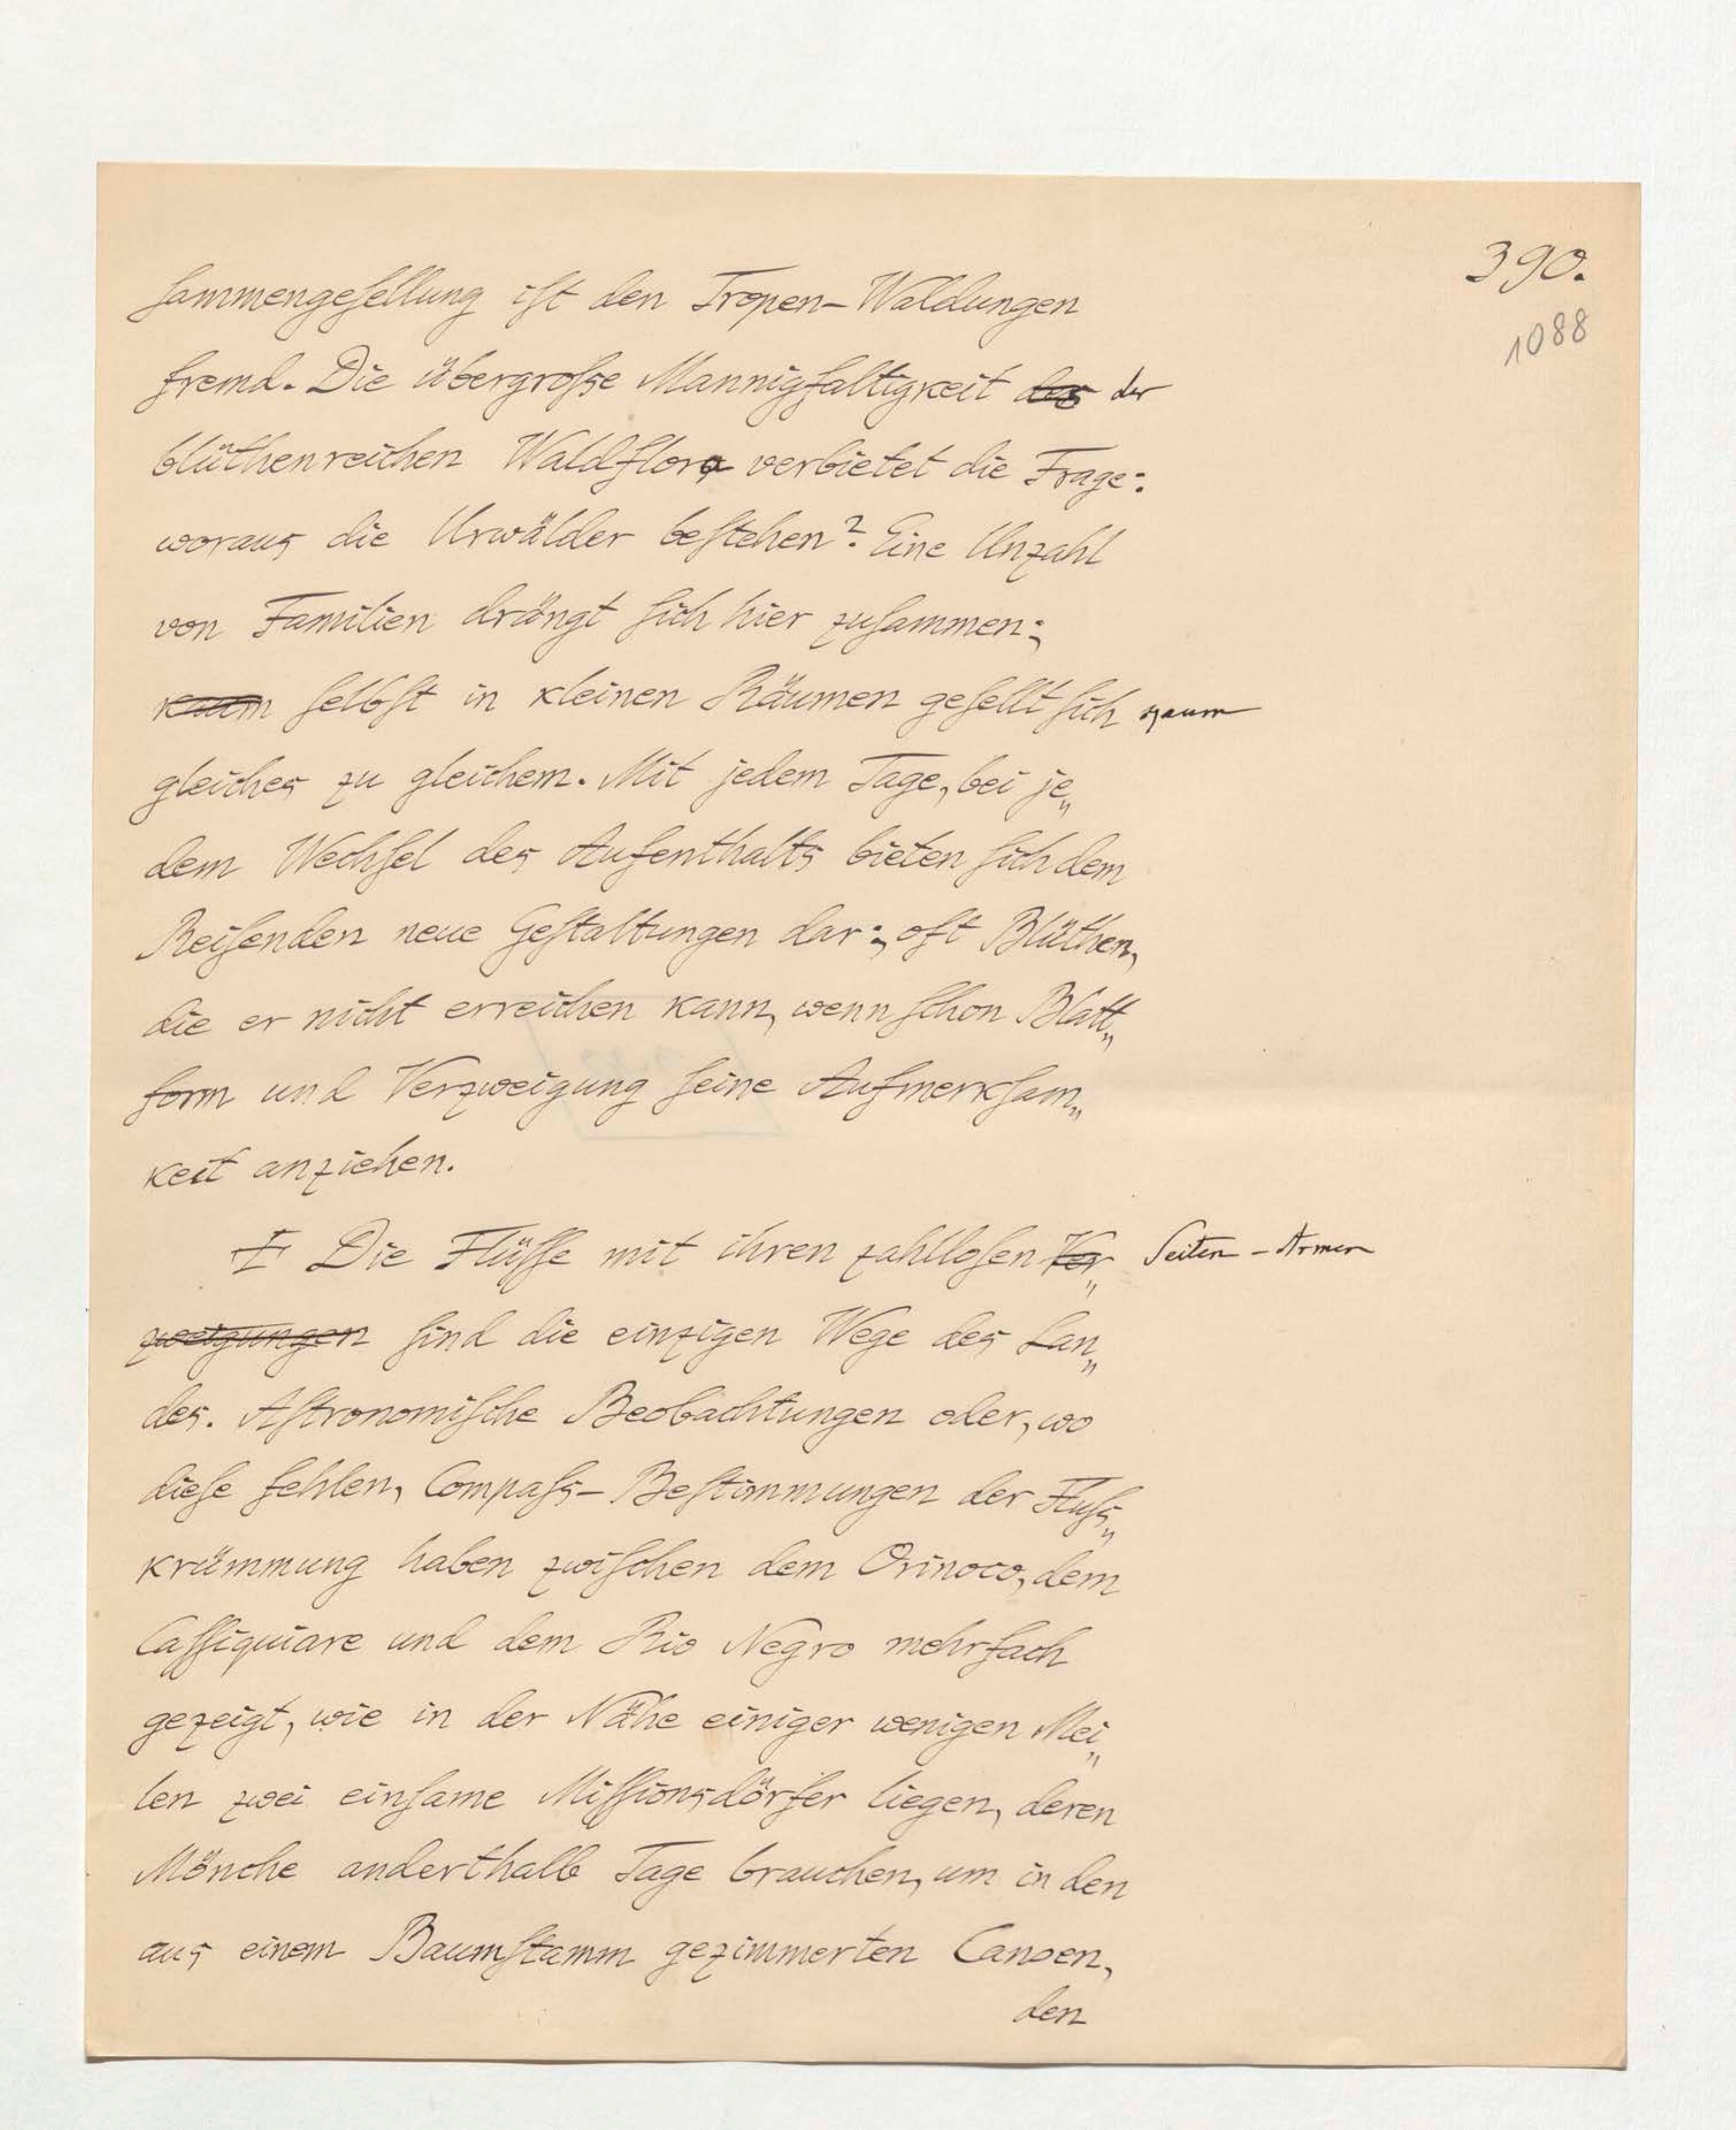 390.
1088
sammengesellung ist den Tropen-Waldungen
fremd. Die übergroße Mannigfaltigkeit des der
blüthenreichen Waldflora verbietet die Frage:
woraus die Urwälder bestehen? Eine Unzahl
von Familien drängt sich hier zusammen;
kaum selbst in kleinen Räumen gesellt sich kaum
gleiches zu gleichem. Mit jedem Tage, bei je„
dem Wechsel des Aufenthalts bieten sich dem
Reisenden neue Gestaltungen dar; oft Blüthen,
die er nicht erreichen kann, wenn schon Blatt„
form und Verzweigung seine Aufmerksam„
keit anziehen.
Die Flüsse mit ihren zahllosen Ver„ Seiten-Armen
zweigungen sind die einzigen Wege des Lan„
des. Astronomische Beobachtungen oder, wo
diese fehlen, Compaß-Bestimmungen der Fluß„
krümmung haben zwischen dem Orinoco, dem
Cassiquiare und dem Rio Negro mehrfach
gezeigt, wie in der Nähe einiger wenigen Mei„
len zwei einsame Missionsdörfer liegen, deren
Mönche anderthalb Tage brauchen, um in den
aus einem Baumstamm gezimmerten Canoen,
den